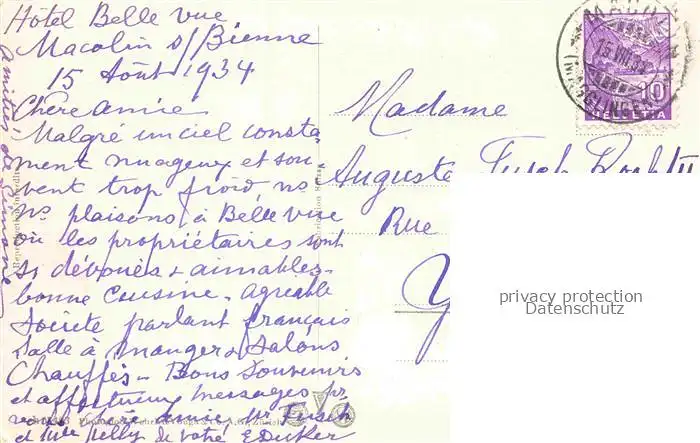 Hôtel Belle vue
Macolin s/Bienne
15 Août 1934
Chère amie
Malgré un ciel consta-
ment nuageux et sou-
vent trop froid, ns
ns plaisons à Belle vue
où les propriétaires sont
si dévoués & aimables,
bonne cuisine, agréable
société parlant français
Salle à manger & Salons
Chauffés - Bons souvenirs
et affectueux messages pr
vous chère amie Mr Fusch
et Mlle Nelly de votre E Duker
Amitiés de Simone
Madame
Auguste Fusch
Rue
Y
10
HELVETIA
MACOLIN
15.VIII.34
(MAGGLINGEN)
privacy protection
Datenschutz